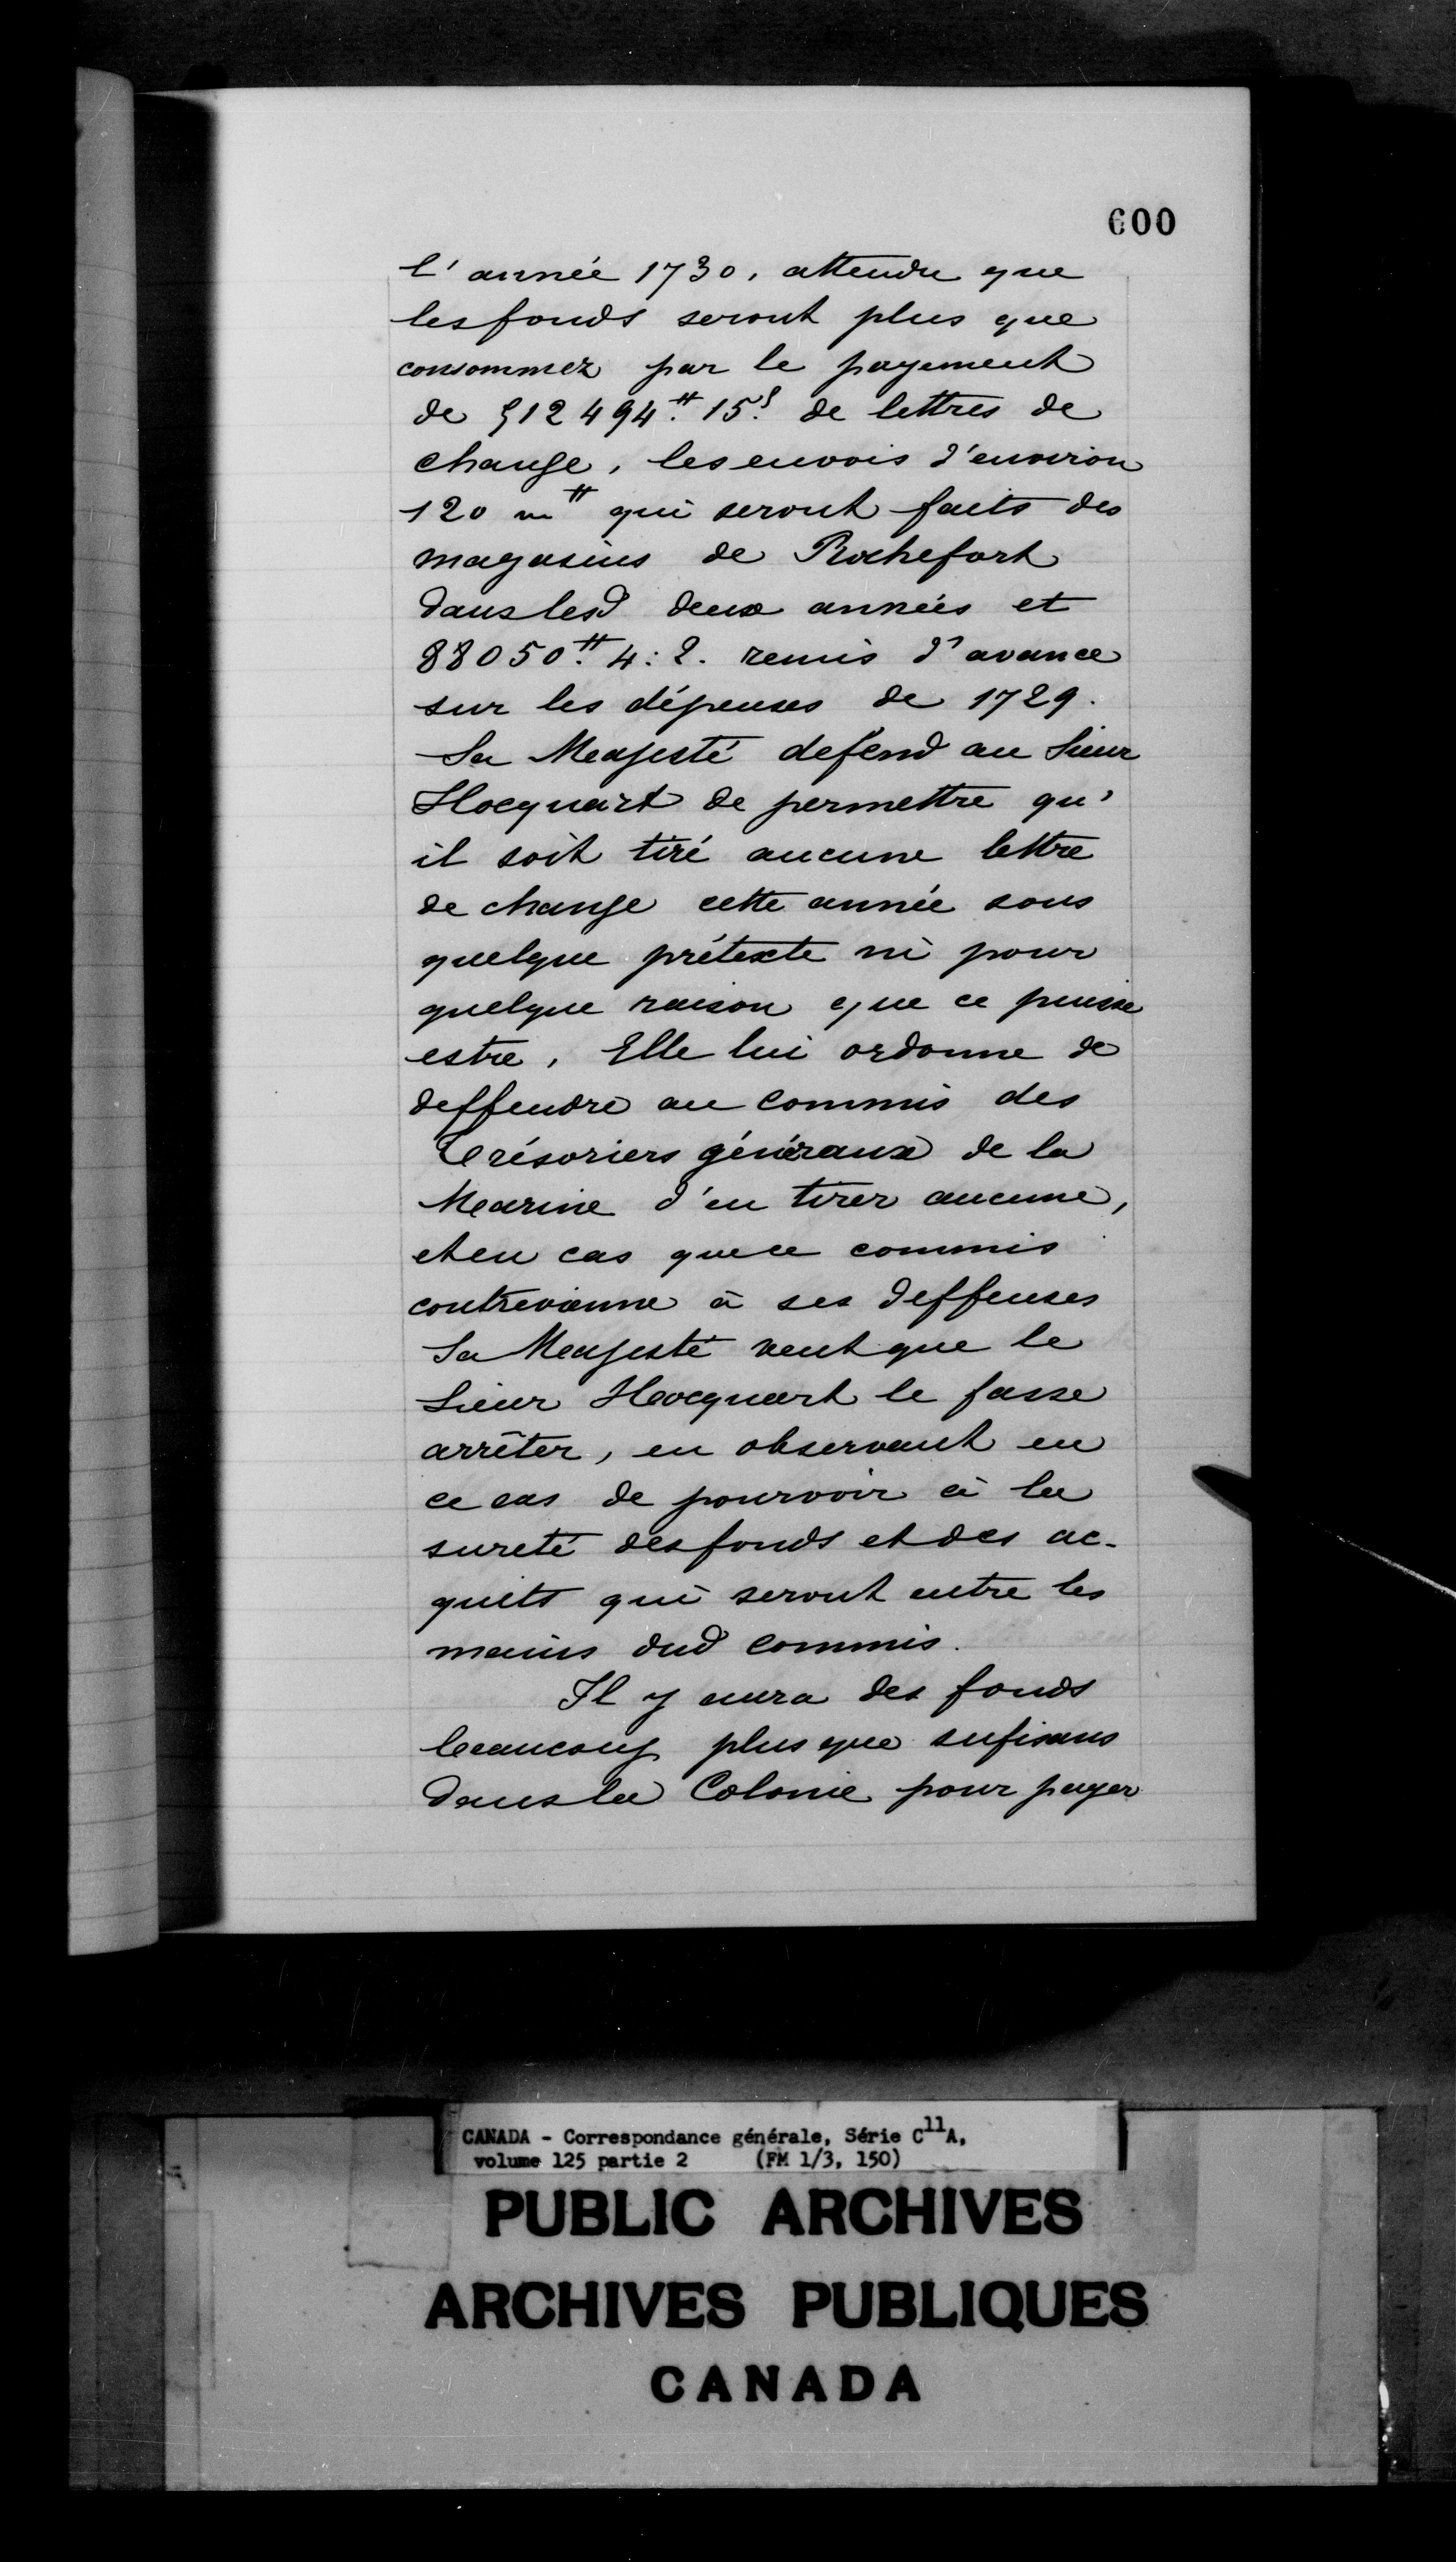 600
l'année 1730, attendu que
les fonds seront plus que
consommez par le payement
de 512494.tt 15.s de lettres de
change, les envois d'environ
120 m tt qui seront faits des
magasins de Rochefort
dans lesd deux années et
88050.tt 4:2. remis d'avance
sur les dépenses de 1729.
Sa Majesté defend au Sieur
Hocquart de permettre qu'
il soit tiré aucune lettre
de change cette année sous
quelque prétexte ni pour
quelque raison que ce puisse
estre, Elle lui ordonne de
deffendre au commis des
Trésoriers généraux de la
Marine d'en tirer aucune,
et en cas que ce commis
contrevienne à ses deffenses
Sa Majesté veut que le
Sieur Hocquart le fasse
arrêter, en observant en
ce cas de pourvoir à la
sureté des fonds et des ac-
quits qui seront entre les
mains dud commis.
Il y aura des fonds
beaucoup plus que sufisans
dans la Colonie pour payer
CANADA - Correspondance générale, Série C11A,
volume 125 partie 2 (FM 1/3, 150)
PUBLIC ARCHIVES
ARCHIVES PUBLIQUES
CANADA